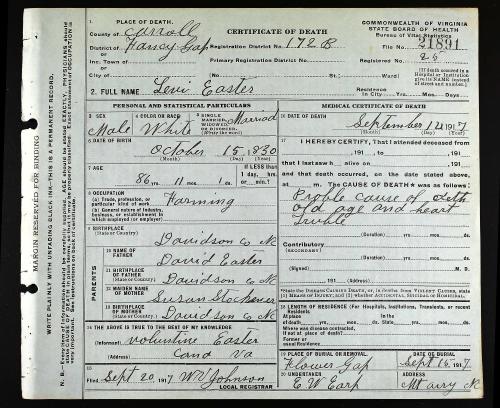 MARGIN RESERVED FOR BINDING
WRITE PLAINLY WITH UNFADING BLACK INK—THIS IS A PERMANENT RECORD.
1. PLACE OF DEATH.
County of Carroll
District of Fancy Gap
Inc. Town of
City of
CERTIFICATE OF DEATH
Registration District No. 172B
Primary Registration District No.
No. St. Ward)
COMMONWEALTH OF VIRGINIA
STATE BOARD OF HEALTH
Bureau of Vital Statistics
File No. 21891
Registered No. 25
(If death occurred in a Hospital or Institution give its NAME instead of street and number.)
2. FULL NAME Levi Easter
Residence In City Yrs. Mos. Days
PERSONAL AND STATISTICAL PARTICULARS
3 SEX
Male
4 COLOR OR RACE
White
5 SINGLE MARRIED WIDOWED OR DIVORCED (Write the word)
Married
6 DATE OF BIRTH
October 15 1830
(Month) (Day) (Year)
7 AGE
86 yrs. 11 mos. ds.
If LESS than 1 day, hrs. or min.?
8 OCCUPATION
(a) Trade, profession, or particular kind of work
(b) General nature of industry, business, or establishment in which employed (or employer)
Farming
9 BIRTHPLACE
(State or Country)
Davidson co NC
PARENTS
10 NAME OF FATHER
David Easter
11 BIRTHPLACE OF FATHER
(State or Country)
Davidson co NC
12 MAIDEN NAME OF MOTHER
13 BIRTHPLACE OF MOTHER
(State or Country)
Davidson co NC
14 THE ABOVE IS TRUE TO THE BEST OF MY KNOWLEDGE
(Informant) Voluntine Easter
(Address) Cana Va
15
Filed Sept 20, 1917 W V Johnson
LOCAL REGISTRAR
MEDICAL CERTIFICATE OF DEATH
16 DATE OF DEATH
September 14 1917
(Month) (Day) (Year)
17 I HEREBY CERTIFY, That I attended deceased
from , 191 , to , 191 ,
that I last saw h alive on , 191 ,
and that death occurred, on the date stated above,
at m. The CAUSE OF DEATH was as follows:
Proble cause of deth
old age and heart
Truble
(Duration) yrs. mos. ds.
Contributory
(SECONDARY)
(Duration) yrs. mos. ds.
(Signed) M. D.
, 191 (Address)
*State the DISEASE CAUSING DEATH, or, in deaths from VIOLENT CAUSES, state (1) MEANS OF INJURY; and (2) whether ACCIDENTAL, SUICIDAL or HOMICIDAL.
18 LENGTH OF RESIDENCE (For Hospitals, Institutions, Transients, or recent Residents)
At place of death, yrs. mos. ds. State yrs. mos. ds.
Where was disease contracted, if not at place of death?
Former or usual residence
19 PLACE OF BURIAL OR REMOVAL
Flower Gap
DATE OF BURIAL
Sept 16, 1917
20 UNDERTAKER
E W Earp
(Address)
Mt airy N